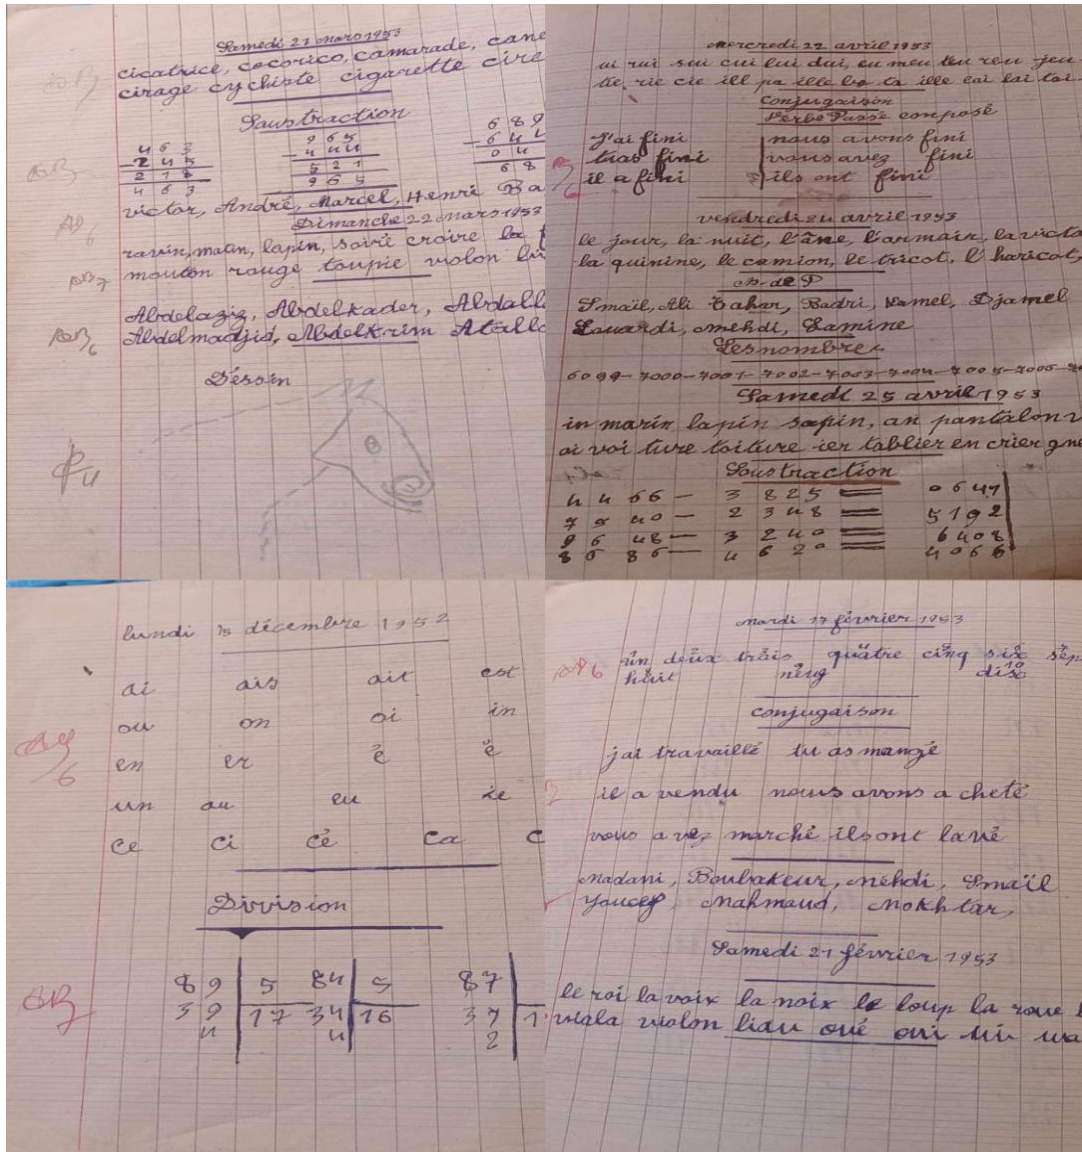 Samedi 21 mars 1953
cicatrice, cocorico, camarade, cane
cirage cychiste cigarette cire
Soustraction
463 965 689
- 245 - 444 - 641
218 521 04
463 965 68
victor, André, Marcel, Henri Ba
Dimanche 22 mars 1953
ravin, matin, lapin, soirie croire
mouton rouge toupie violon
Abdelaziz, Abdelkader, Abdall
Abdelmadjid, Abdelkrim Atall
Déssin
mercredi 22 avril 1953
ui rui sui cui lui dui, eu meu teu reu jeu
tie rie cie ill pa ille
Conjugaison
Verbe Passé composé
J'ai fini nous avons fini
tuas fini vous avez fini
il a fini ils ont fini
vendredi 24 avril 1953
le jour, la nuit, l'âne, l'armair, la victo
la quinine, le camion, le tricot, l'haricot,
Smaïl, Ali Tahar, Badri, Kamel, Djamel
Louardi, Mehdi, Lamine
Les nombres
6099 - 7000 - 7001 - 7002 - 7003 - 7004 - 7005 - 7006 - 70
Samedi 25 avril 1953
in marin lapin sapin, an pantalon
oi voi ture toiture ier tablier en crier gne
Soustraction
4466 — 3825 = 0647
7940 — 2348 = 5192
9648 — 3240 = 6408
8686 — 4620 = 4066
lundi 15 décembre 1952
ai ais ait est
ou on oi in
en er é è
un au eu ie
ce ci cé ca c
Division
89 5 84 5 87
39 17 34 16 37 1
4 4 2
mardi 17 février 1953
un deux trois quatre cinq six sep
huit neuf dise
conjugaison
jai travaillé tu as mangé
il a vendu nous avons a cheté
vous a vez marché ils ont lavé
Madani, Boubakeur, Mehdi, Smaïl
Youcef, Mahmoud, Mokhtar,
Samedi 21 février 1953
le roi la voix la noix le loup la roue
violon liau oué oui